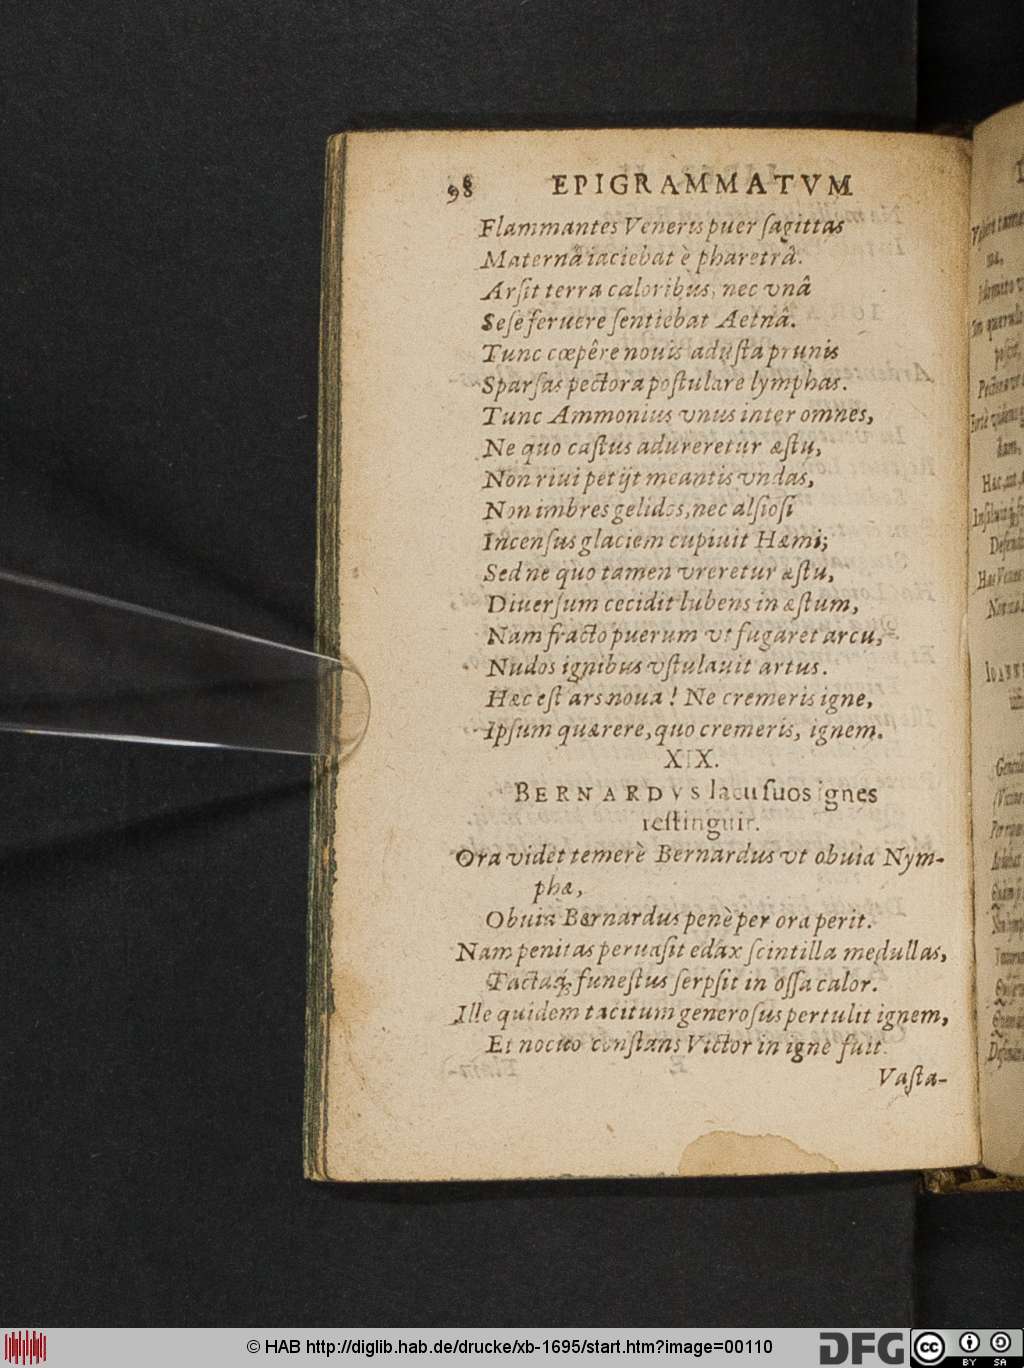 98 EPIGRAMMATVM
Flammantes Veneris puer ſagittas
Maternâ iaciebat è pharetrâ.
Arſit terra caloribus, nec vnâ
Seſe feruere ſentiebat Aetnâ.
Tunc cœpêre nouis aduſta prunis
Sparſas pectora poſtulare lymphas.
Tunc Ammonius vnus inter omnes,
Ne quo caſtus adureretur æſtu,
Non riui petijt meantis vndas,
Non imbres gelidos, nec alſioſi
Incenſus glaciem cupiuit Hæmi;
Sed ne quo tamen vreretur æſtu,
Diuerſum cecidit lubens in æſtum,
Nam fracto puerum vt fugaret arcu,
Nudos ignibus vſtulauit artus.
Hæc eſt ars noua! Ne cremeris igne,
Ipſum quærere, quo cremeris, ignem.
XIX.
BERNARDVS lacu ſuos ignes
reſtinguit.
Ora videt temerè Bernardus vt obuia Nym-
phæ,
Obuia Bernardus penè per ora perit.
Nam penitas peruaſit edax ſcintilla medullas,
Tactaq́; funeſtus ſerpſit in oſſa calor.
Ille quidem tacitum generoſus pertulit ignem,
Et nocuo conſtans Victor in igne fuit.
Vaſta-
© HAB http://diglib.hab.de/drucke/xb-1695/start.htm?image=00110
DFG
cc BY SA